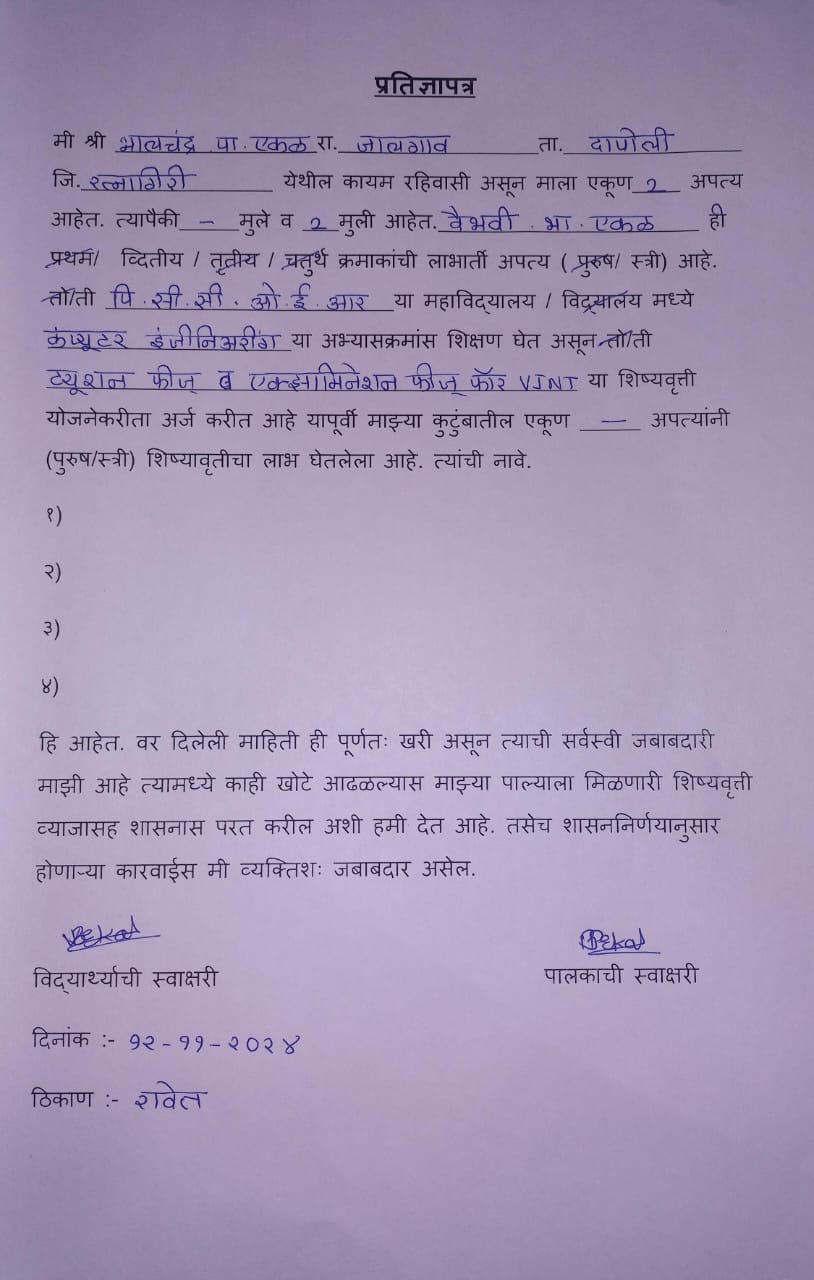 प्रतिज्ञापत्र
मी श्री भालचंद्र पा. एकळ रा. जालगाव ता. दापोली
जि. रत्नागिरी येथील कायम रहिवासी असून माला एकूण 2 अपत्य
आहेत. त्यापैकी – मुले व 2 मुली आहेत. वैभवी . भा . एकळ ही
प्रथम/ व्दितीय / तृतीय / चतुर्थ क्रमाकांची लाभार्ती अपत्य ( पुरुष/ स्त्री) आहे.
तो/ती पि . सी . सी . ओ . ई . आर या महाविद्यालय / विद्यालय मध्ये
कंप्यूटर इंजीनिअरींग या अभ्यासक्रमांस शिक्षण घेत असून तो/ती
ट्यूशन फीज् व एक्झामिनेशन फीज् फॉर VJNT या शिष्यवृत्ती
योजनेकरीता अर्ज करीत आहे यापूर्वी माझ्या कुटुंबातील एकूण — अपत्यांनी
(पुरुष/स्त्री) शिष्यावृतीचा लाभ घेतलेला आहे. त्यांची नावे.
१)
२)
३)
४)
हि आहेत. वर दिलेली माहिती ही पूर्णतः खरी असून त्याची सर्वस्वी जबाबदारी
माझी आहे त्यामध्ये काही खोटे आढळल्यास माझ्या पाल्याला मिळणारी शिष्यवृत्ती
व्याजासह शासनास परत करील अशी हमी देत आहे. तसेच शासननिर्णयानुसार
होणाऱ्या कारवाईस मी व्यक्तिशः जबाबदार असेल.
विद्यार्थ्याची स्वाक्षरी पालकाची स्वाक्षरी
दिनांक :- १२-११-२०२४
ठिकाण :- रावेत